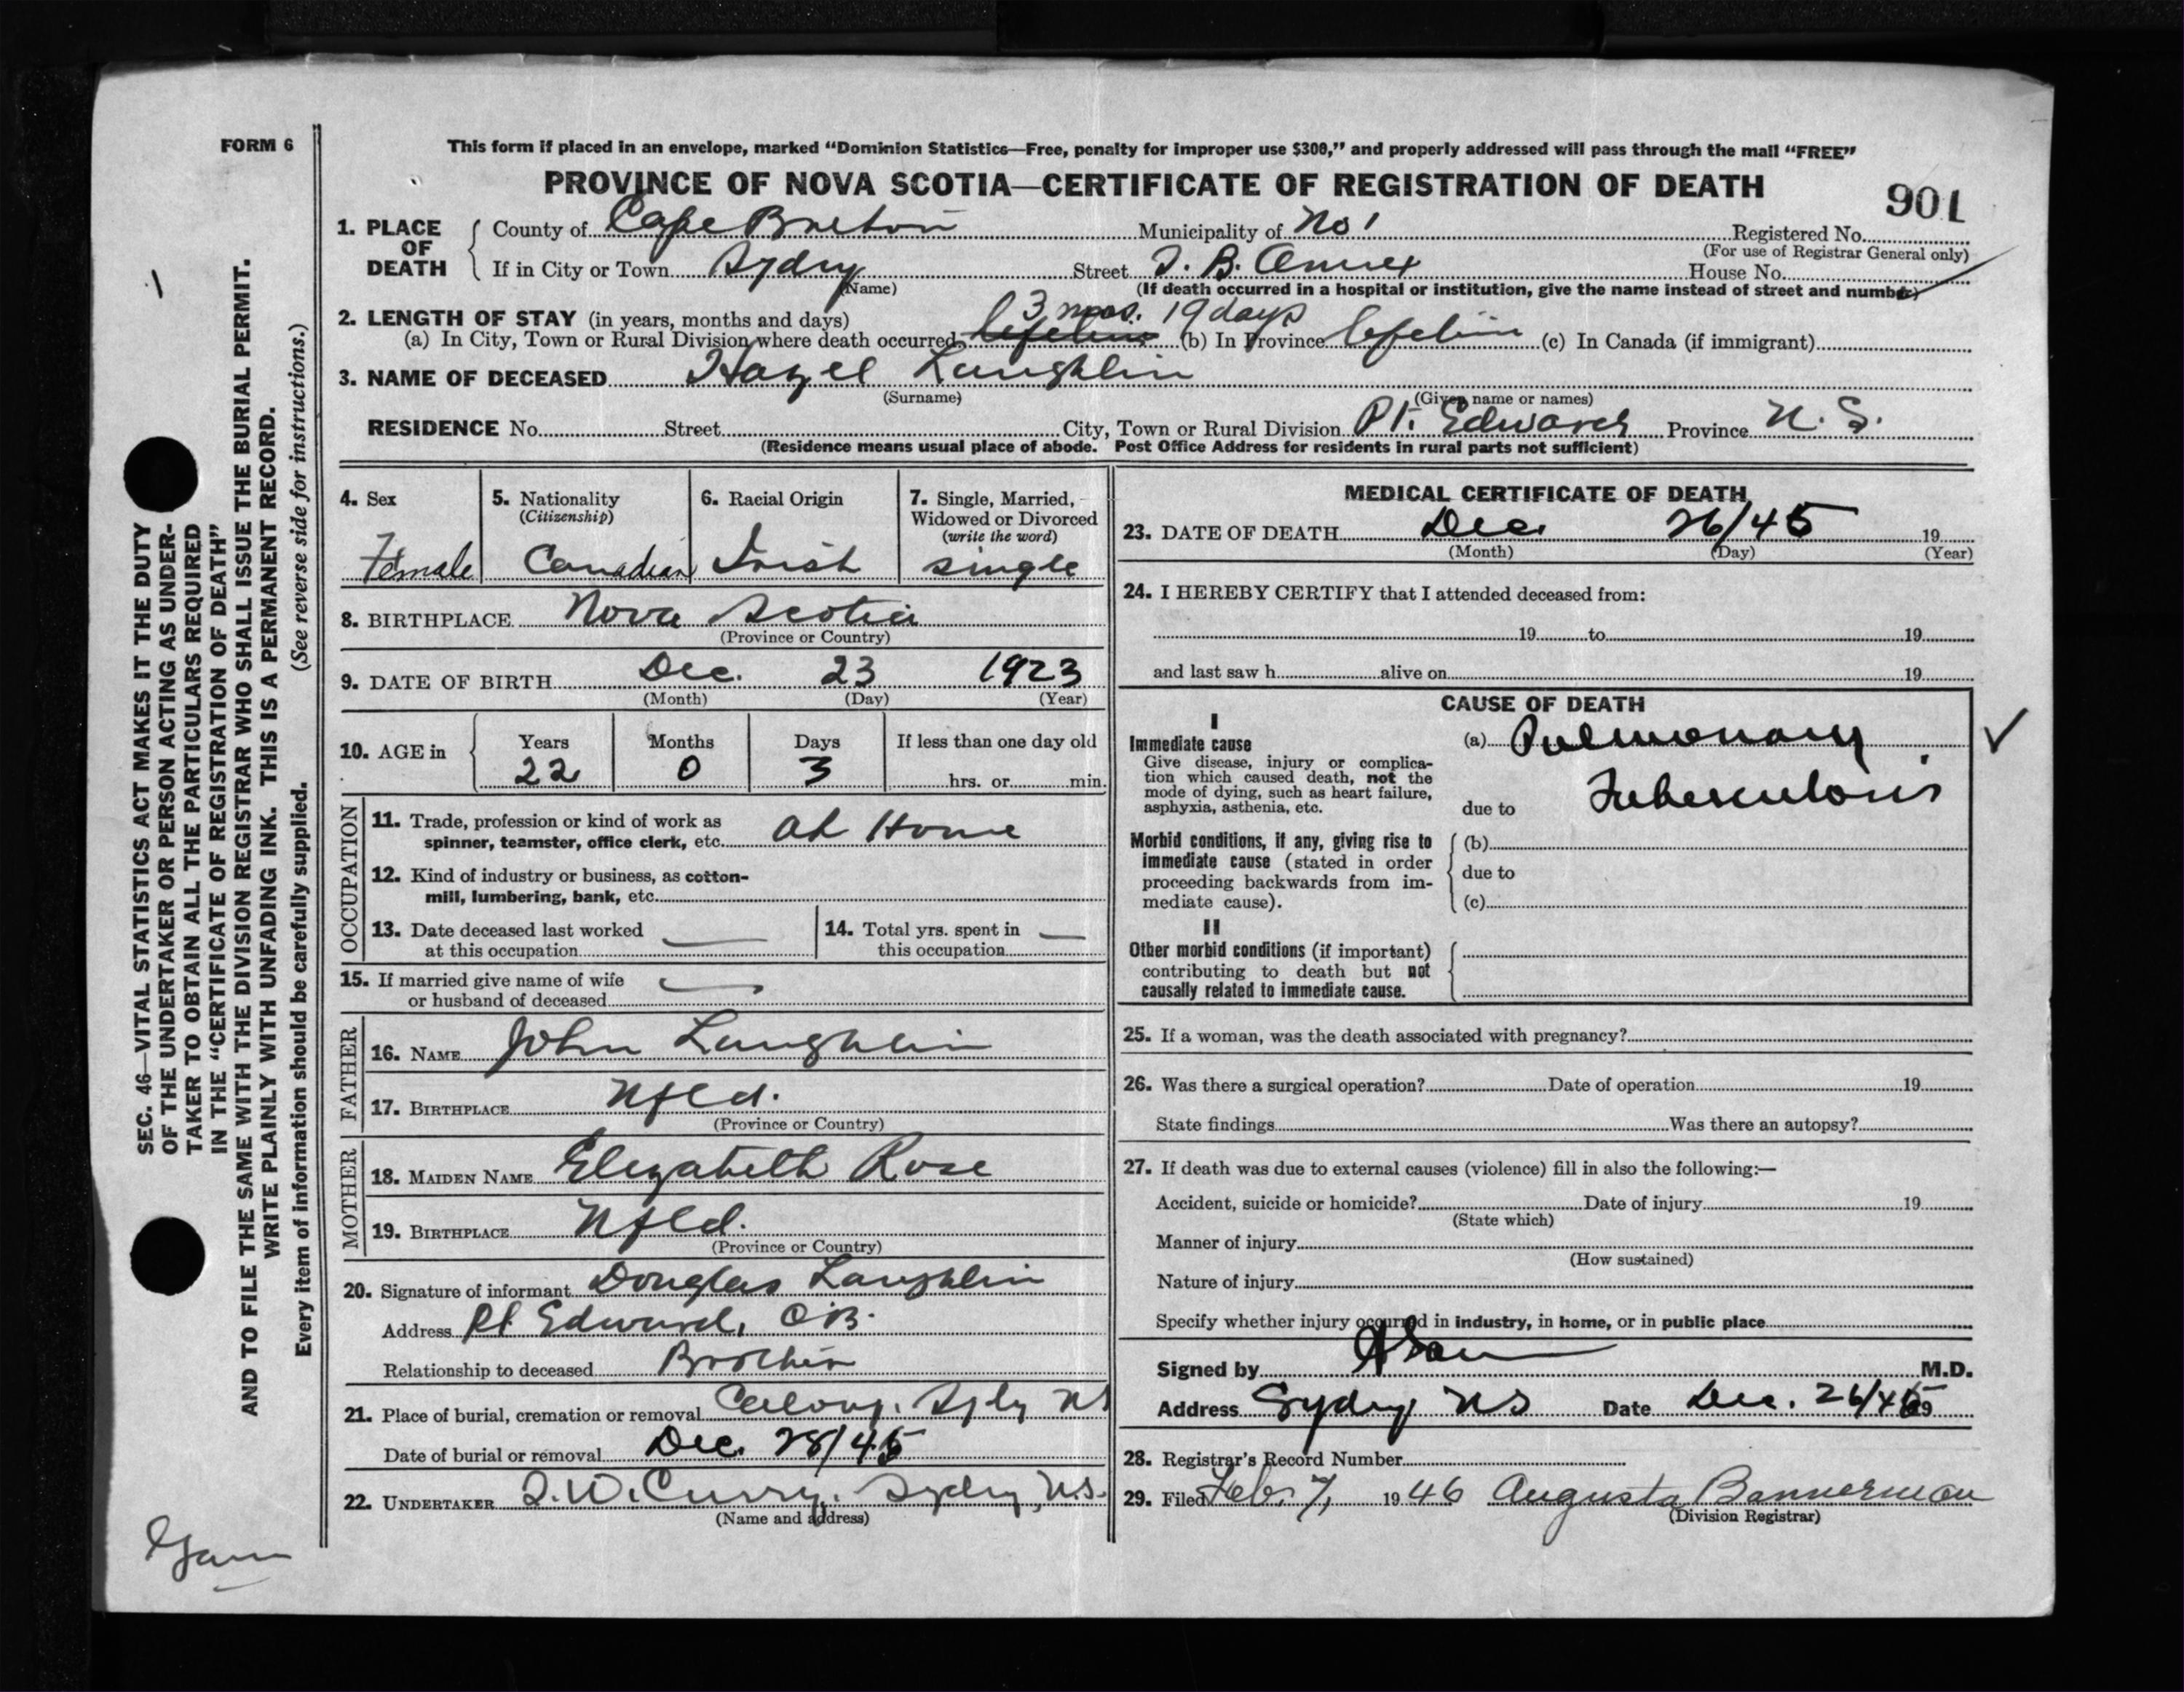 FORM 6
This form if placed in an envelope, marked “Dominion Statistics—Free, penalty for improper use $300,” and properly addressed will pass through the mail “FREE”
PROVINCE OF NOVA SCOTIA—CERTIFICATE OF REGISTRATION OF DEATH
901
1. PLACE OF DEATH
County of Cape Breton Municipality of No 1 Registered No.
(For use of Registrar General only)
If in City or Town Sydney Street T. B. Annex House No.
(Name) (If death occurred in a hospital or institution, give the name instead of street and number)
2. LENGTH OF STAY (in years, months and days) 3 mos. 19 days
(a) In City, Town or Rural Division where death occurred lifetime (b) In Province lifetime (c) In Canada (if immigrant)
3. NAME OF DECEASED Hazel Laughlin
(Surname) (Given name or names)
RESIDENCE No. Street City, Town or Rural Division Pt. Edward Province N. S.
(Residence means usual place of abode. Post Office Address for residents in rural parts not sufficient)
4. Sex
Female
5. Nationality
(Citizenship)
Canadian
6. Racial Origin
Irish
7. Single, Married,
Widowed or Divorced
(write the word)
single
8. BIRTHPLACE Nova Scotia
(Province or Country)
9. DATE OF BIRTH Dec. 23 1923
(Month) (Day) (Year)
10. AGE in
Years Months Days If less than one day old
22 0 3 hrs. or min.
OCCUPATION
11. Trade, profession or kind of work as
spinner, teamster, office clerk, etc. at Home
12. Kind of industry or business, as cotton-
mill, lumbering, bank, etc.
13. Date deceased last worked
at this occupation
14. Total yrs. spent in
this occupation
15. If married give name of wife
or husband of deceased
FATHER
16. NAME John Laughlin
17. BIRTHPLACE Nfld.
(Province or Country)
MOTHER
18. MAIDEN NAME Elizabeth Rose
19. BIRTHPLACE Nfld.
(Province or Country)
20. Signature of informant Douglas Laughlin
Address Pt Edward, C.B.
Relationship to deceased Brother
21. Place of burial, cremation or removal NS
Date of burial or removal Dec. 28/45
22. UNDERTAKER Curry, Sydney, N.S.
(Name and address)
MEDICAL CERTIFICATE OF DEATH
23. DATE OF DEATH Dec. 26/45 19
(Month) (Day) (Year)
24. I HEREBY CERTIFY that I attended deceased from:
19 to 19
and last saw h alive on 19
CAUSE OF DEATH
I
Immediate cause
Give disease, injury or complica-
tion which caused death, not the
mode of dying, such as heart failure,
asphyxia, asthenia, etc.
(a) Pulmonary
due to Tuberculosis
Morbid conditions, if any, giving rise to
immediate cause (stated in order
proceeding backwards from im-
mediate cause).
(b)
due to
(c)
II
Other morbid conditions (if important)
contributing to death but not
causally related to immediate cause.
25. If a woman, was the death associated with pregnancy?
26. Was there a surgical operation? Date of operation 19
State findings Was there an autopsy?
27. If death was due to external causes (violence) fill in also the following:—
Accident, suicide or homicide? Date of injury 19
(State which)
Manner of injury
(How sustained)
Nature of injury
Specify whether injury occurred in industry, in home, or in public place
Signed by M.D.
Address Sydney NS Date Dec. 26/45 19
28. Registrar's Record Number
29. Filed Feb. 7, 1946 Augusta Bannerman
(Division Registrar)
SEC. 46—VITAL STATISTICS ACT MAKES IT THE DUTY
OF THE UNDERTAKER OR PERSON ACTING AS UNDER-
TAKER TO OBTAIN ALL THE PARTICULARS REQUIRED
IN THE “CERTIFICATE OF REGISTRATION OF DEATH”
AND TO FILE THE SAME WITH THE DIVISION REGISTRAR WHO SHALL ISSUE THE BURIAL PERMIT.
WRITE PLAINLY WITH UNFADING INK. THIS IS A PERMANENT RECORD.
Every item of information should be carefully supplied. (See reverse side for instructions.)